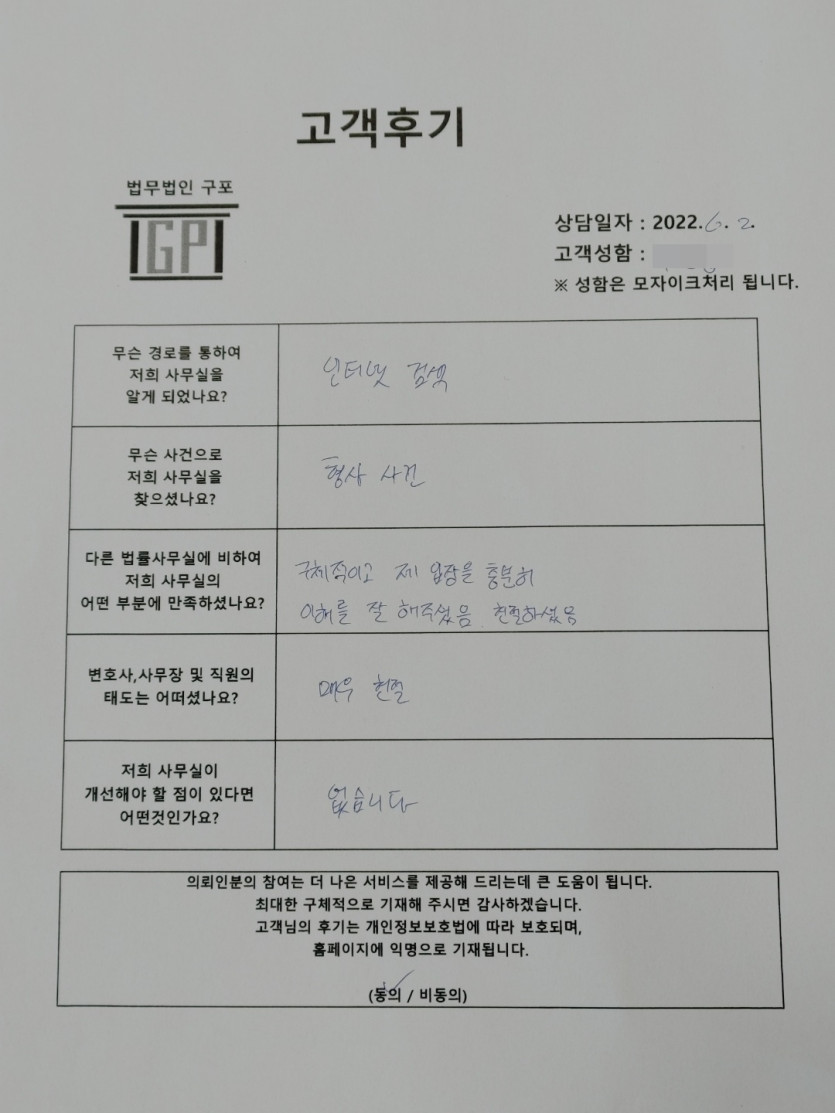 고객후기
법무법인 구포
IGPI
상담일자 : 2022.6. 2.
고객성함 :
※ 성함은 모자이크처리 됩니다.
무슨 경로를 통하여
저희 사무실을
알게 되었나요?
인터넷 검색
무슨 사건으로
저희 사무실을
찾으셨나요?
형사 사건
다른 법률사무실에 비하여
저희 사무실의
어떤 부분에 만족하셨나요?
구체적이고 제 입장을 충분히
이해를 잘 해주셨음. 친절하셨음
변호사,사무장 및 직원의
태도는 어떠셨나요?
매우 친절
저희 사무실이
개선해야 할 점이 있다면
어떤것인가요?
없습니다
의뢰인분의 참여는 더 나은 서비스를 제공해 드리는데 큰 도움이 됩니다.
최대한 구체적으로 기재해 주시면 감사하겠습니다.
고객님의 후기는 개인정보보호법에 따라 보호되며,
홈페이지에 익명으로 기재됩니다.
(동의 / 비동의)